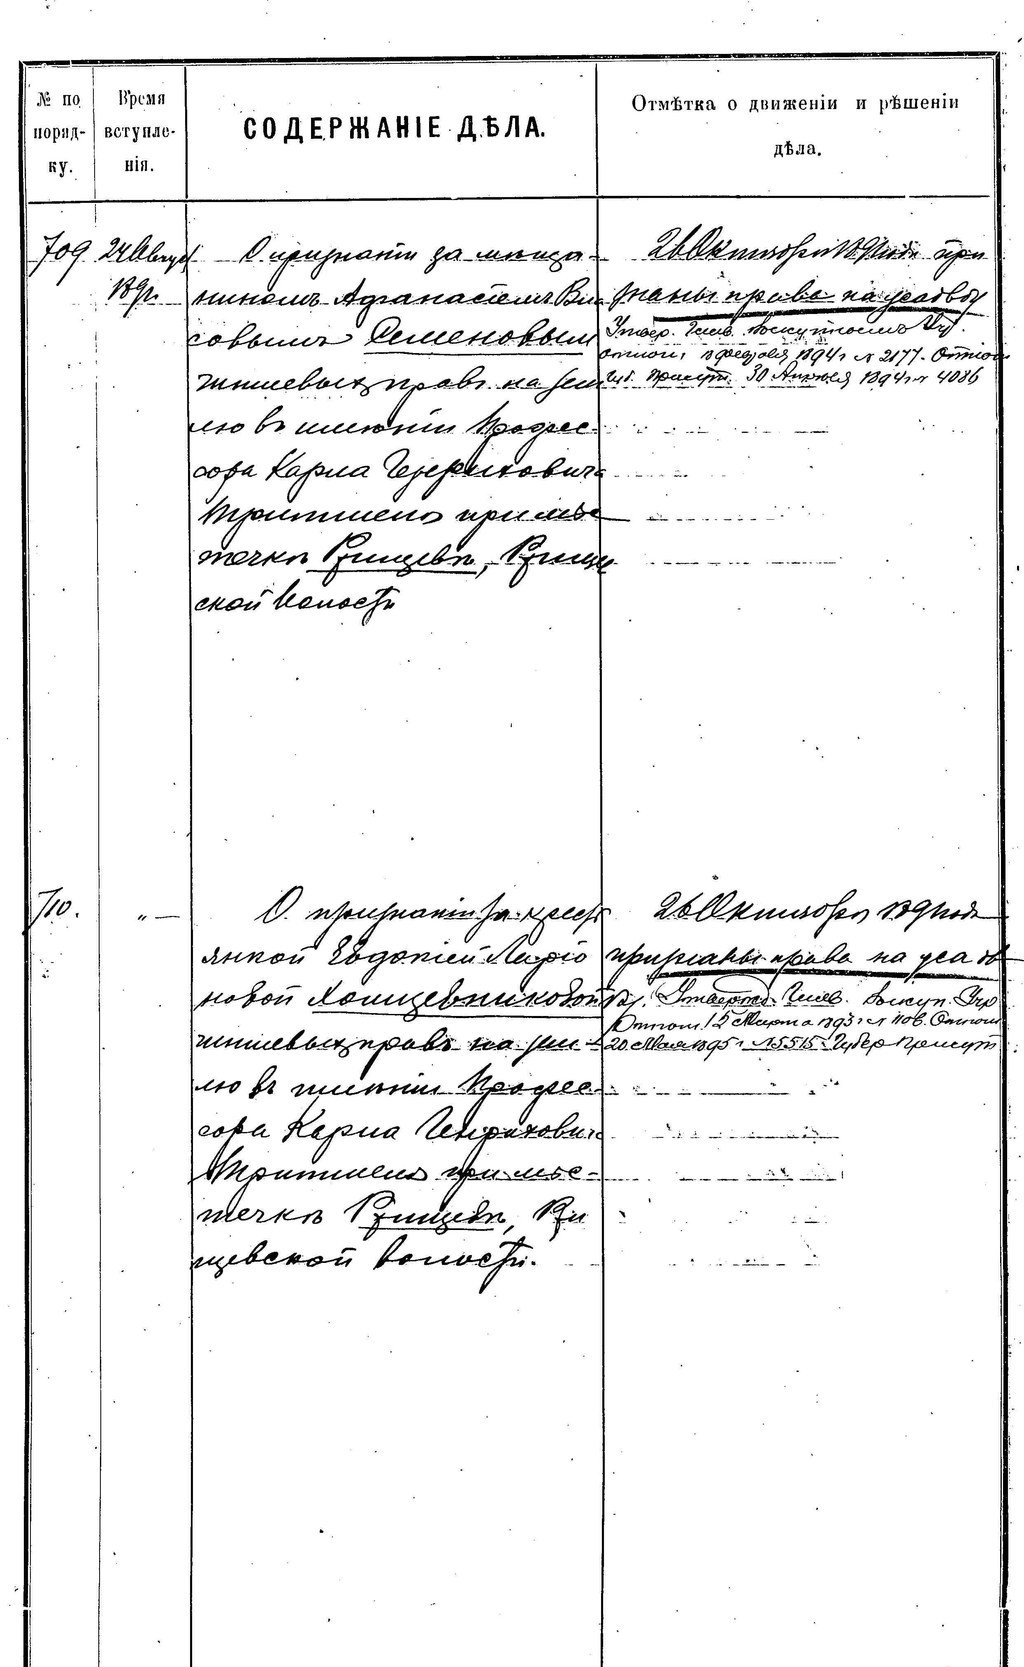 № по порядку.
Время вступленія.
СОДЕРЖАНІЕ ДѢЛА.
Отмѣтка о движеніи и рѣшеніи
дѣла.
709
24 Август
189
О признаніи за мѣща-
ниномъ Афанасіемъ
совымъ Семеновымъ
чиншевыхъ правъ на зем
лю въ имѣніи Профес-
сора Карла Генриховича
Тритшель при мѣс
течкѣ Ржищевѣ, Ржище
ской волости
26 Октября 189 года при
знаны права на усадьбу
Утвер. Чинш. Присутствіемъ
февраля 1894 г № 2177.
Губ. Присут. 30 Апрѣля 1894 г № 4086
710.
„ —
О признаніи за крест
янкой Евдокіей Ларіо
новой Холищевниковой
чиншевыхъ правъ на зем-
лю въ имѣніи Профес-
сора Карла Генрихович
Тритшель при мѣс-
течкѣ Ржищевѣ, Ржи
щевской волости.
26 Октября 189 года
признаны права на усадь
бу. Утвержд. Чинш. Присут.
12 Марта 1895 г №
20 Мая 1895 г № 5515 Губер Присут